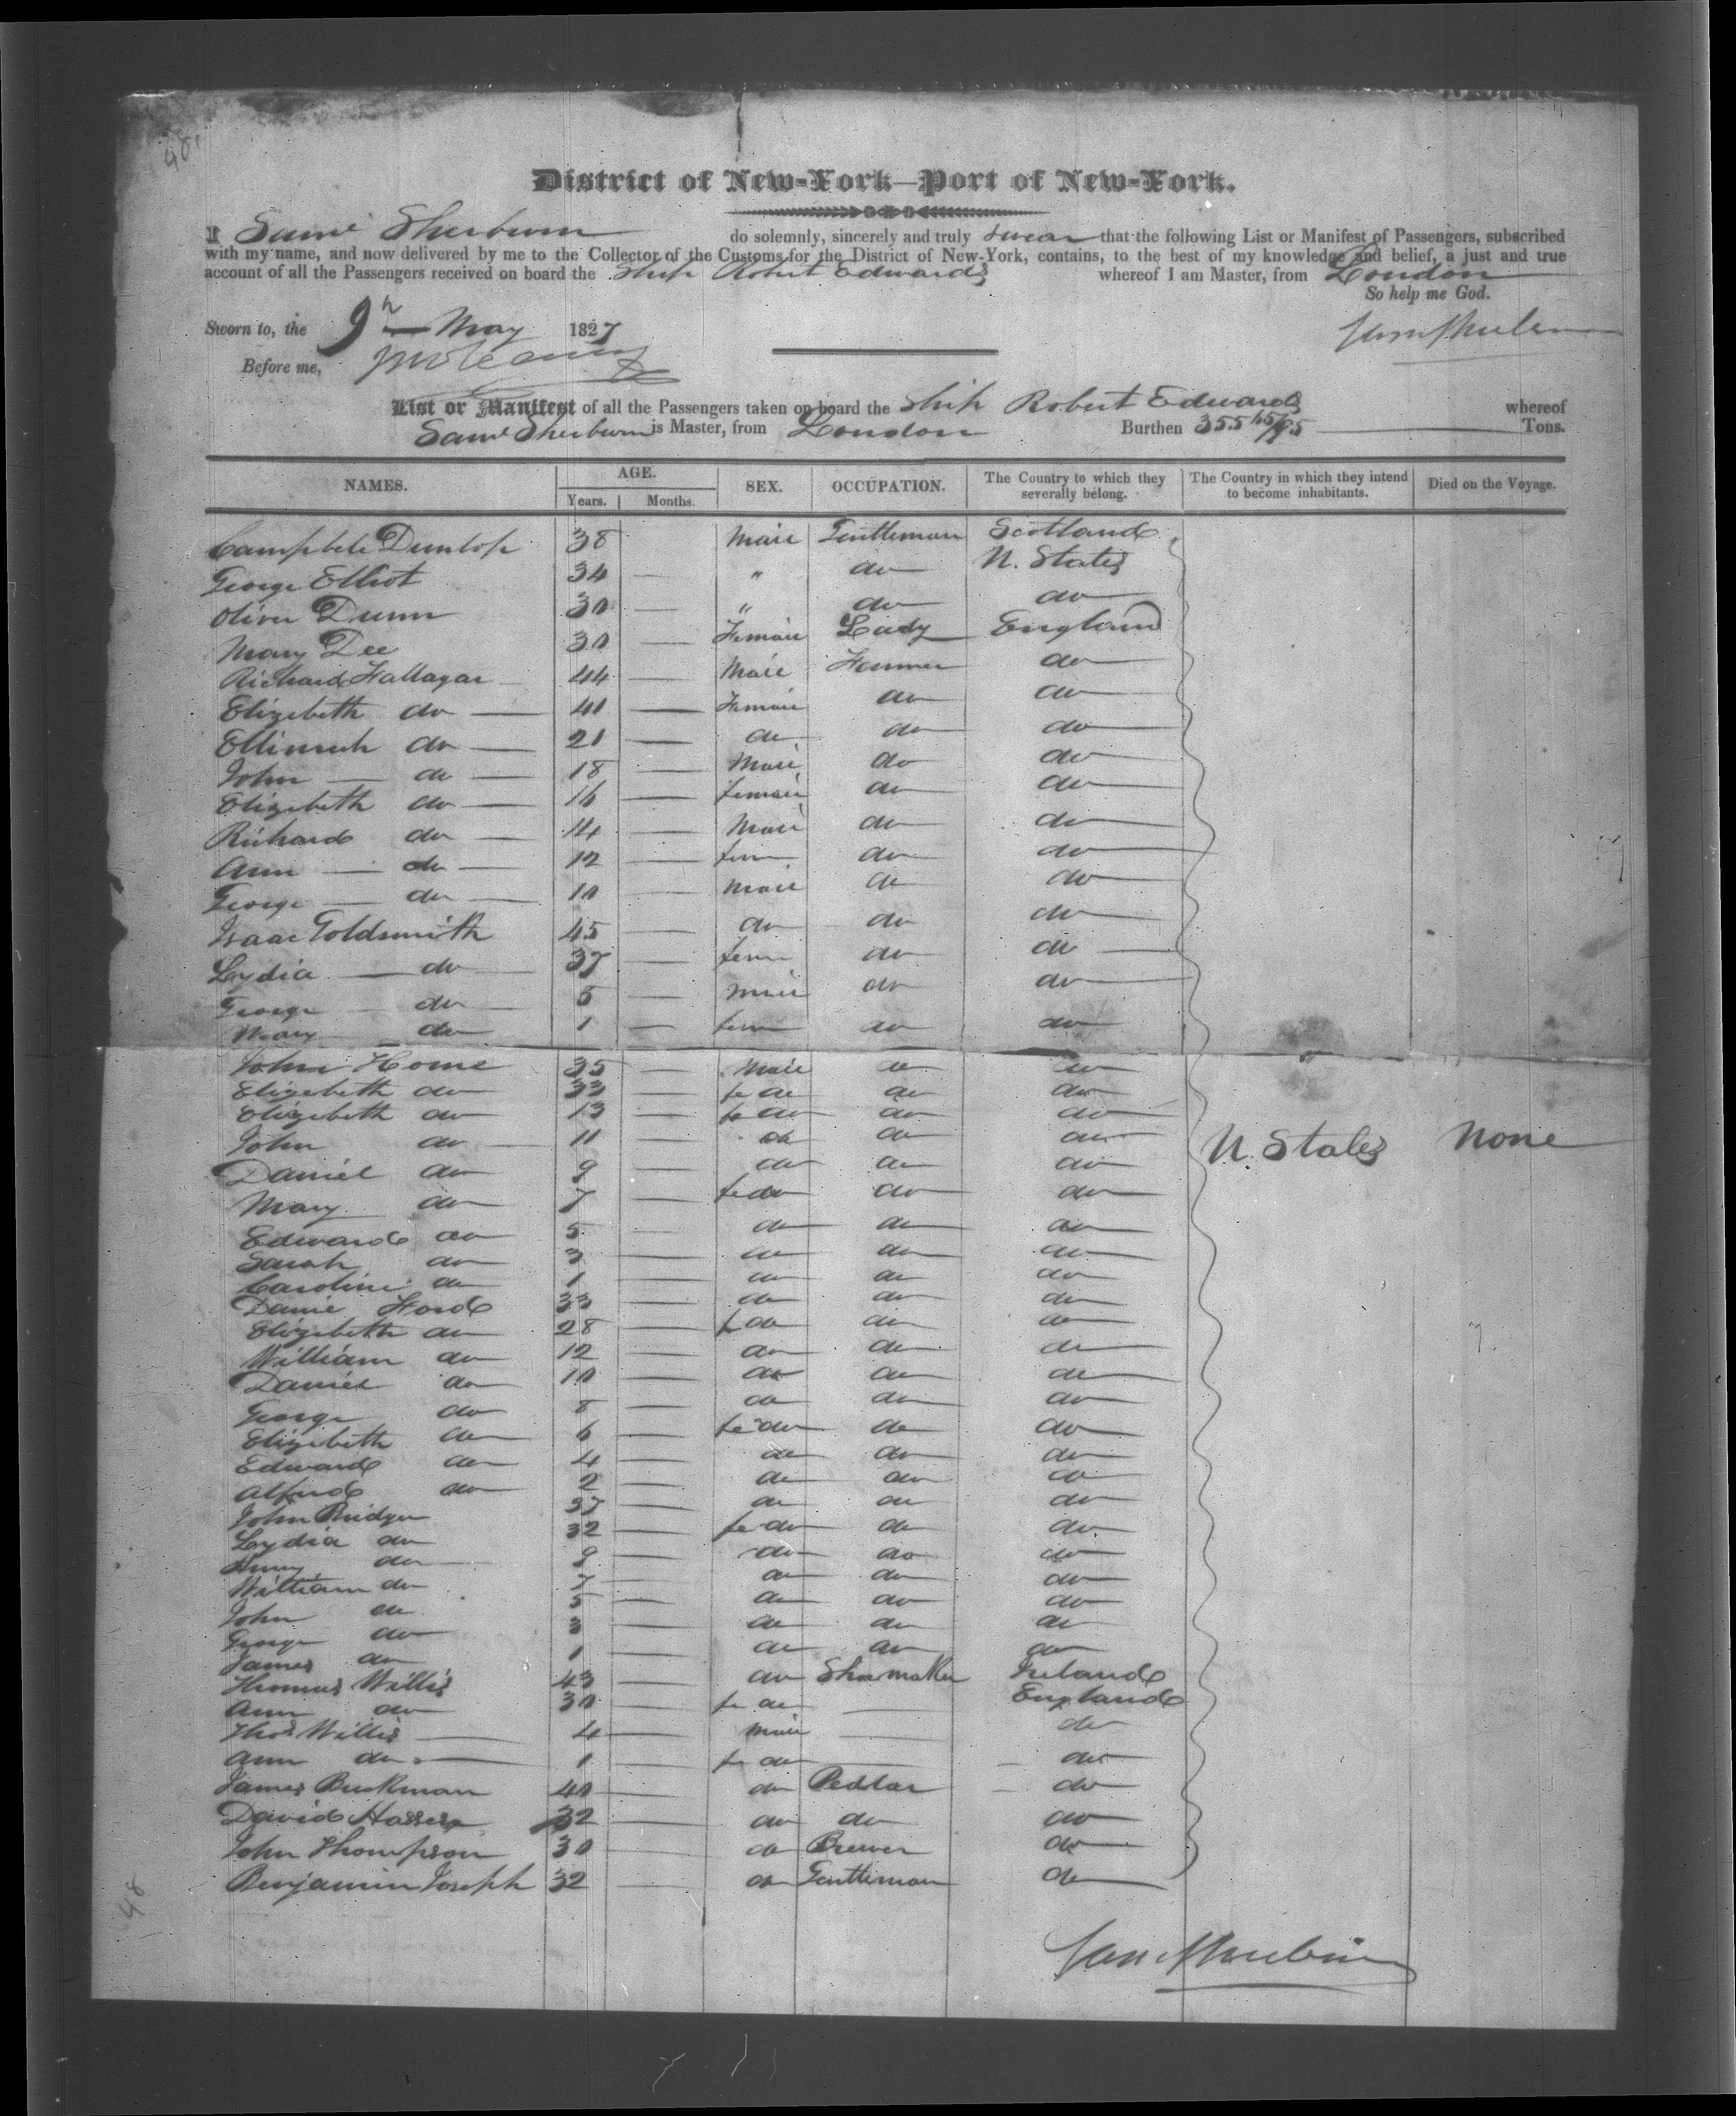 48
District of New-York—Port of New-York.
I Saml Sherburn do solemnly, sincerely and truly swear that the following List or Manifest of Passengers, subscribed
with my name, and now delivered by me to the Collector of the Customs for the District of New-York, contains, to the best of my knowledge and belief, a just and true
account of all the Passengers received on board the Ship Robert Edwards whereof I am Master, from London
So help me God.
Sworn to, the 9th May 1827
Before me,
List or Manifest of all the Passengers taken on board the Ship Robert Edwards whereof
Saml Sherburn is Master, from London Burthen 355 45/95 Tons.
NAMES. AGE. Years. Months. SEX. OCCUPATION. The Country to which they severally belong. The Country in which they intend to become inhabitants. Died on the Voyage.
Campbele Dunlop 38 Male Gentleman Scotland
George Elliot 34 — " do U. States
Oliver Dunn 30 — " do do
Mary Dee 30 — Female Lady England
Richard Hallagar 44 — Male Farmer do
Elizebeth do 41 — Female do do
do 21 — do do do
John do 18 — Male do do
Elizebeth do 16 — female do do
Richard do 14 — Male do do
Ann do 12 — fem do do
George do 10 — Male do do
Isaac Goldsmith 45 — do do do
Lydia do 37 — fem do do
George do 5 — male do do
Mary do 1 — fem do do
John Home 35 — Male do do
Elizebeth do 33 — fe do do do
Elizebeth do 13 — fe do do do
John do 11 — do do do U. States None
Daniel do 9 — do do do
Mary do 7 — fe do do do
Edward do 5 — do do do
Sarah do 3 — do do do
Caroline do 1 — do do do
Danie Ford 33 — do do do
Elizebeth do 28 — fe do do do
William do 12 — do do do
Daniel do 10 — do do do
George do 8 — do do do
Elizebeth do 6 — fe do do do
Edward do 4 — do do do
Alfred do 2 — do do do
John Bridger 37 do do do
Lydia do 32 — fe do do do
Henry do 9 — do do do
William do 7 — do do do
John do 5 — do do do
George do 3 — do do do
James do 1 — do do do
Thomas Willis 43 — do Shoemaker Ireland
Ann do 30 — fe do — England
Thos Willis 4 — male — do
Ann do 1 — fe do — do
James Buckman 40 — do Pedlar do
David 32 — do do do
John Thompson 30 — do Brewer do
Benjamin Joseph 32 — do Gentleman do
48